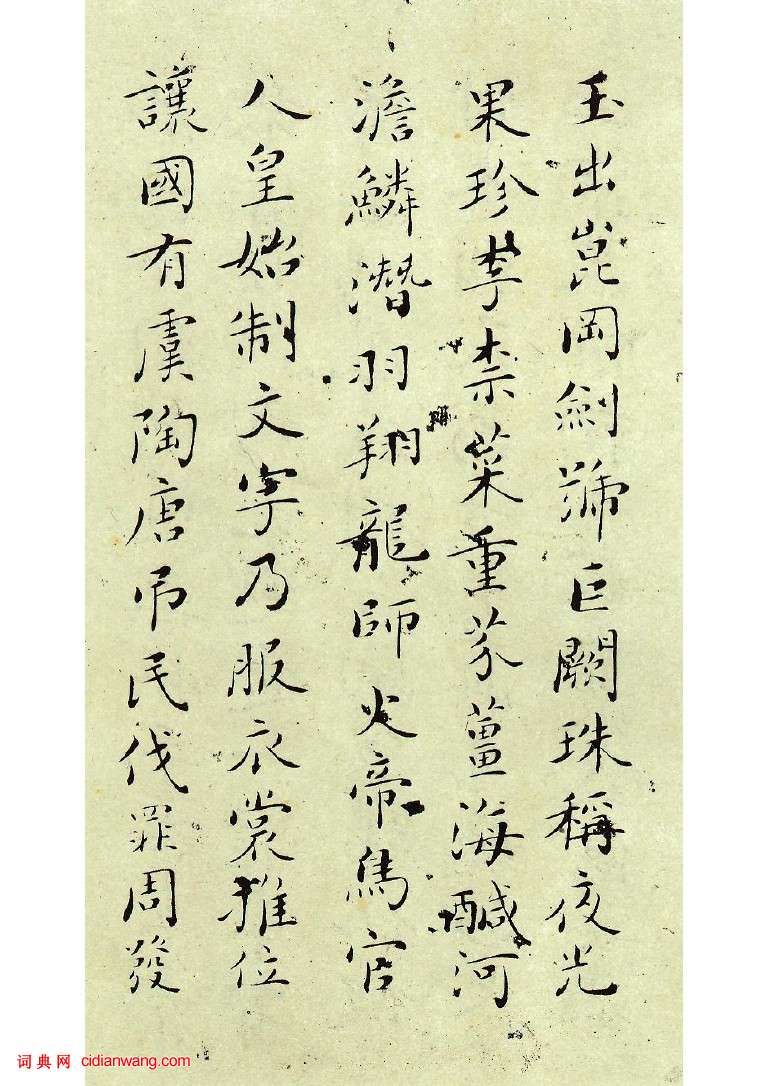 玉出崑岡劍號巨闕珠稱夜光
果珍李柰菜重芥薑海醎河
澹鱗潛羽翔龍師火帝鳥官
人皇始制文字乃服衣裳推位
讓國有虞陶唐弔民伐罪周發
词典网 cidianwang.com